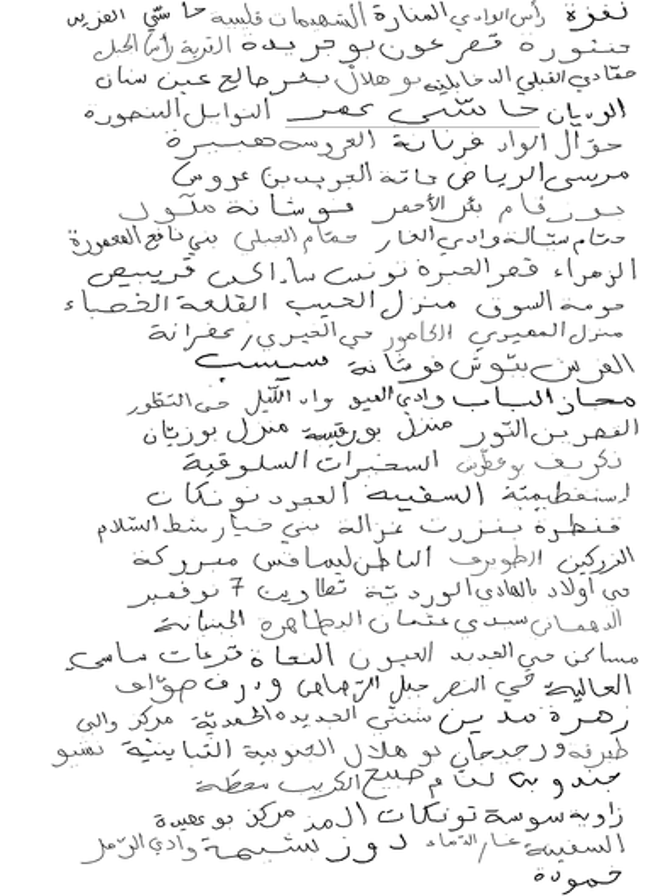 نفزة رأس الوادي المنارة الشهيمات قليبية حاسّي الفريد
منتورة قصر عون بو جريدة القرية رأس الجبل
حمّادي القبلي الدخايلية بو هلال بئر صالح عين سنان
الرديان حاسّي عمر النوايل المنصورة
حوّال الواد فرنانة العروسة هبيرة
مرسى الرياض جانة الجريد بن عروس
بئر الأحمر فوشانة متلول
حمّام سيّالة وادي الغار حمّام الجبلي بني نافع المعمورة
الزهراء قصر الحيرة تونس قريبيص
حومة السوق منزل الحبيب القلعة الخصباء
منزل المهيري الخامور حي الخيري زعفرانة
العرس بتّوش فوشانة سبيسب
مجاز الباب وادي واد اللّيل حي التطّور
القصرين النّور منزل بورقيبة منزل بوزيّان
تكريف بوعطّوش السعيرات السلوقية
اسنفطيميّة السفينة العمرد تونكات
قنطرة بنزرت غزالة بني خيار شط السّلام
الزركين الطويرف الباطن ليماقس مبروكة
حي أولاد بالهادي الورديّة تطاوين 7 نوفمبر
الدهماني سيدي عثمان البطاهرة الجبانة
مساكن حي الجديد العيون النجاة قرعات ساسي
العالية حي النصر جبل الرّصاص ودرف صوّاف
زهرة مدين سنتي الجديدة المحمديّة مركز والي
طبرقة ورجدجان بو هلال الجنوبية القباينيّة نسيو
جندوبة سالم صبيح الكريب محطّة
زاوية سوسة تونكات المد مركز بوعصيدة
السفينة غار الدّماء دوز سليمة وادي الرّمل
حمودة